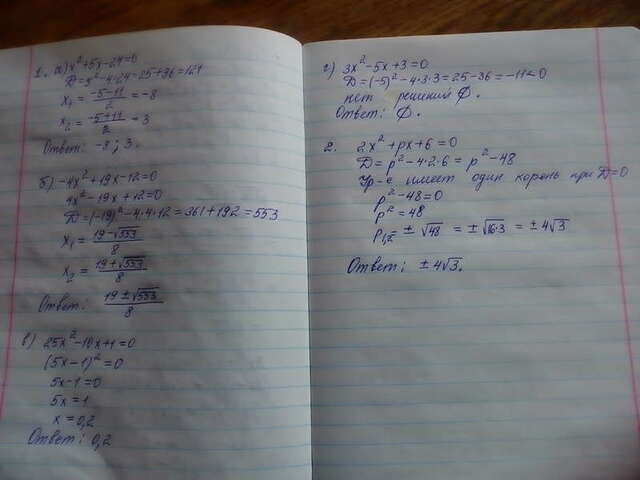 1. а) x²+5x-24=0
D=5²-4·24=25+96=121
x₁ = (-5-11)/2 = -8
x₂ = (-5+11)/2 = 3
Ответ: -8; 3.
б) -4x²+19x-12=0
4x²-19x+12=0
D=(-19)²-4·4·12=361+192=553
x₁ = (19-√553)/8
x₂ = (19+√553)/8
Ответ: (19±√553)/8
в) 25x²-10x+1=0
(5x-1)²=0
5x-1=0
5x=1
x=0,2
Ответ: 0,2
г) 3x²-5x+3=0
D=(-5)²-4·3·3=25-36=-11<0
нет решений ∅.
Ответ: ∅.
2. 2x²+px+6=0
D=p²-4·2·6=p²-48
Ур-е имеет один корень при D=0
p²-48=0
p²=48
p₁,₂=±√48=±√16·3=±4√3
Ответ: ±4√3.